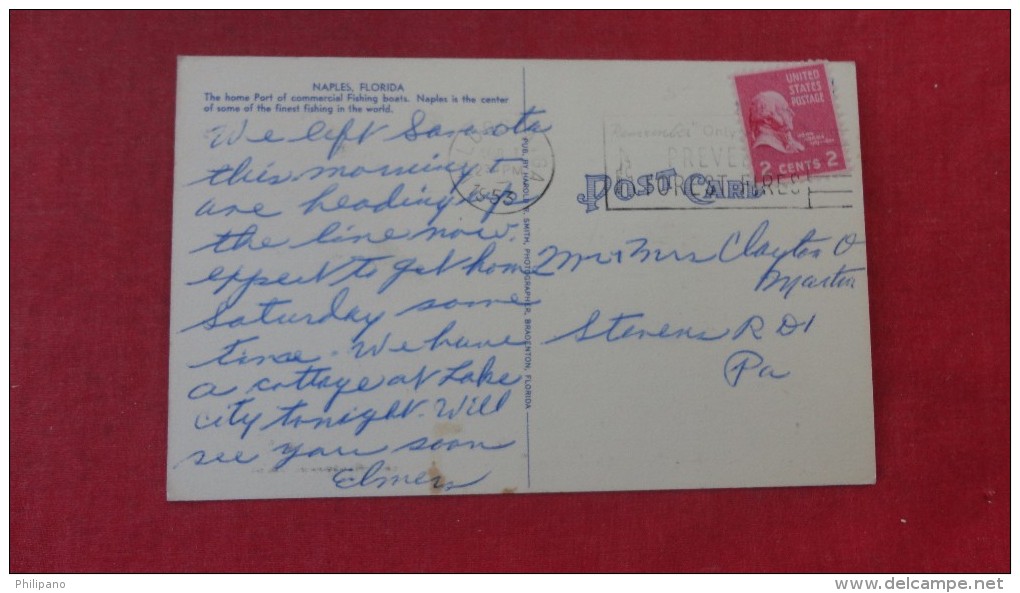 NAPLES, FLORIDA
The home Port of commercial Fishing boats. Naples is the center
of some of the finest fishing in the world.
We left Sarasota
this morning &
are heading up
the line now.
expect to get home
Saturday some
time. We have
a cottage at Lake
City tonight. Will
see you soon
Elmer
PUB. BY HAROLD W. SMITH, PHOTOGRAPHER, BRADENTON, FLORIDA
PM
1953
Remember Only
PREVE
FOREST FIRES!
UNITED
STATES
POSTAGE
2 CENTS 2
POST CARD
Mr & Mrs Clayton O
Martin
Stevens R D 1
Pa
Philipano
www.delcampe.net